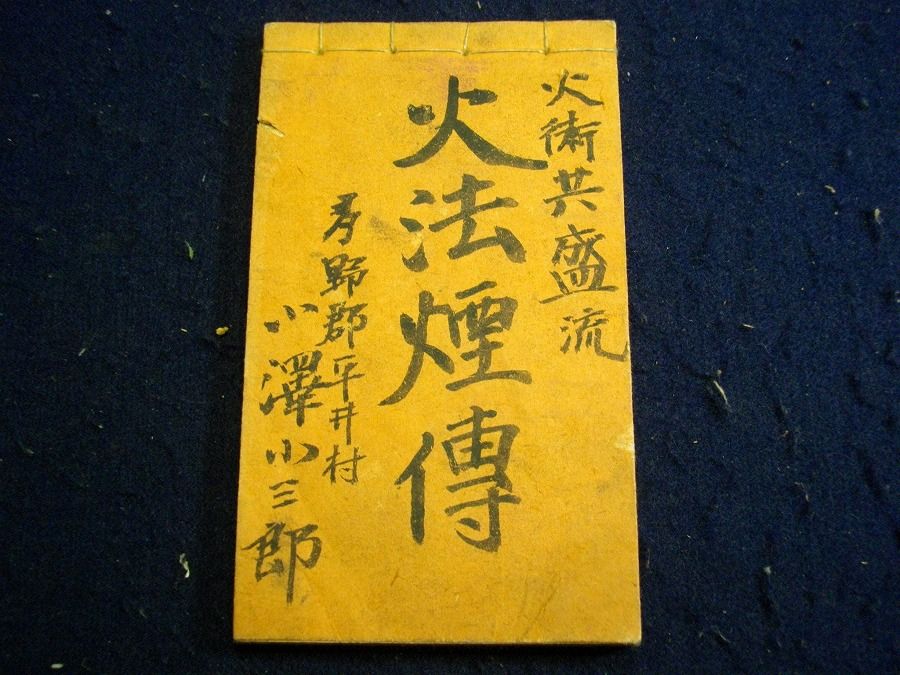 火術共盛流
火法煙傳
多野郡平井村
小澤小三郎